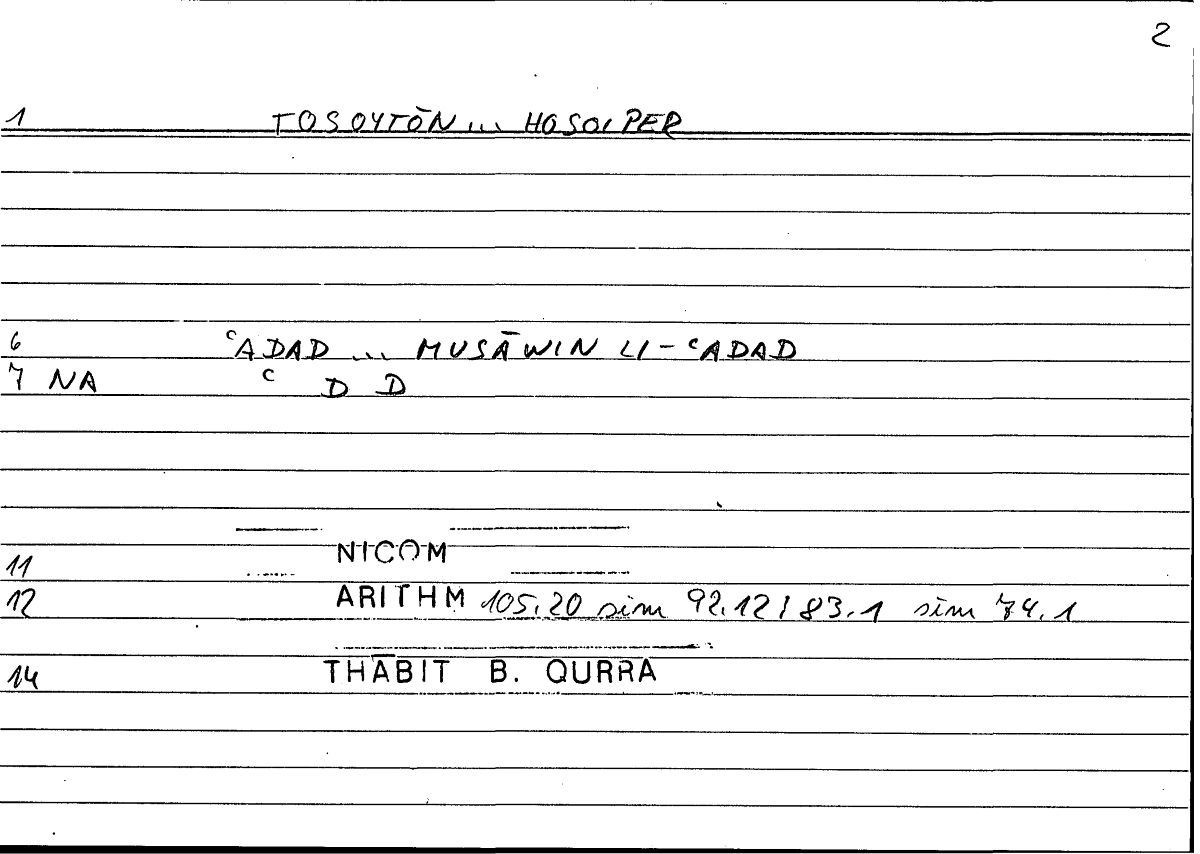 2
1 TOSOYTŌN ... HOSOIPER
6 ʿADAD ... MUSĀWIN LI-ʿADAD
7 NA ʿ D D
11 NICOM
12 ARITHM 105.20 sim 92.12 ; 83.1 sim 74.1
14 THĀBIT B. QURRA